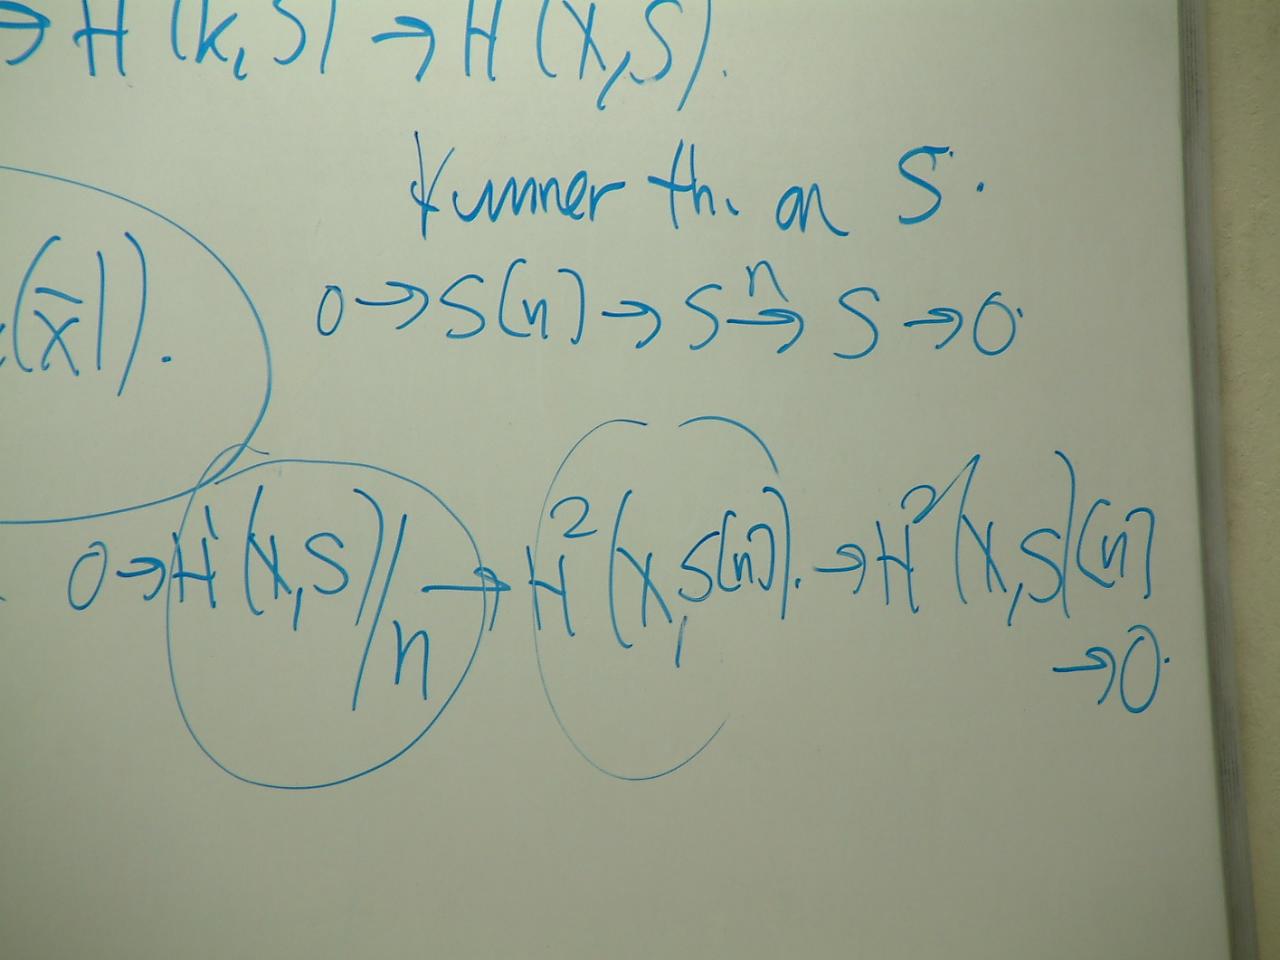 → H (k, S) → H (X, S).
Kummer th. on S.
(X̄)).
0 → S[n] → S →ⁿ S → 0.
0 → H¹(X, S)/n → H²(X, S[n]). → H²(X, S)[n]
→ 0.